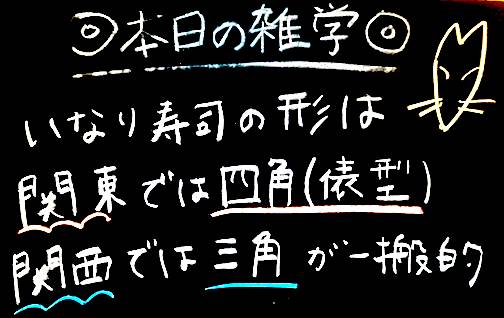 ◎本日の雑学◎
いなり寿司の形は
関東では四角(俵型)
関西では三角が一般的